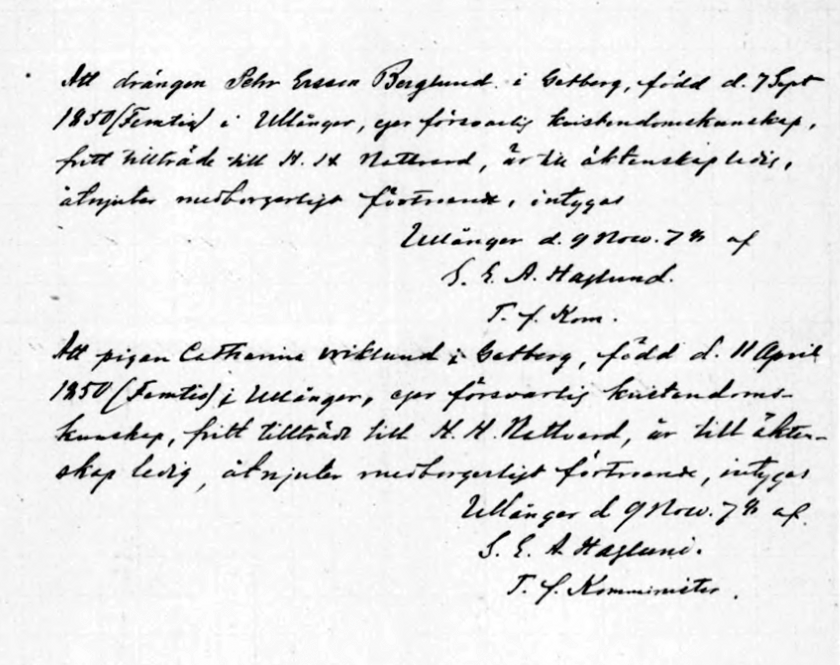 Att drängen Pehr Ersson Berglund i Getberg, född d. 7 Sept
1850 (Femtio) i Ullånger, eger försvarlig kristendomskunskap,
fritt tillträde till H. H. Nattvard, är till äktenskap ledig,
åtnjuter medborgerligt förtroende, intygas
Ullånger d. 9 Nov. 7 af
S. E. A. Haglund.
T. f. Kom.
Att pigan Catharina Wiklund i Getberg, född d. 11 April
1850 (Femtio) i Ullånger, eger försvarlig kristendoms-
kunskap, fritt tillträde till H. H. Nattvard, är till äkten-
skap ledig, åtnjuter medborgerligt förtroende, intygas
Ullånger d 9 Nov. 7 af.
S. E. A. Haglund.
T. f. Komminister.